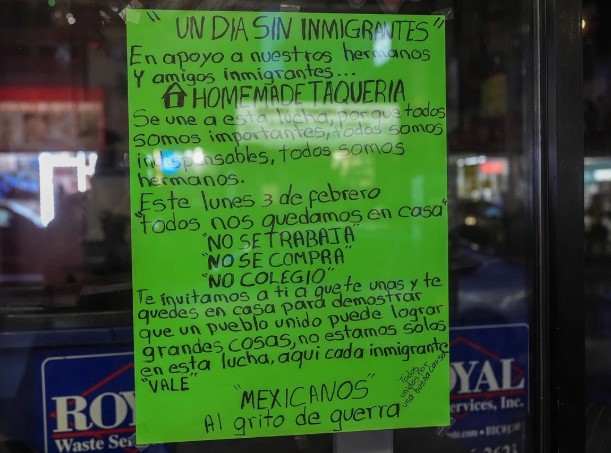 "UN DIA SIN INMIGRANTES"
En apoyo a nuestros hermanos
Y amigos inmigrantes...
HOMEMADE TAQUERIA
Se une a esta lucha, porque todos
somos importantes, todos somos
indispensables, todos somos
hermanos.
Este lunes 3 de febrero
"todos nos quedamos en casa"
"NO SE TRABAJA"
"NO SE COMPRA"
"NO COLEGIO"
Te invitamos a ti a que te unas y te
quedes en casa para demostrar
que un pueblo unido puede lograr
grandes cosas, no estamos solos
en esta lucha, aqui cada inmigrante
"VALE"
Todos
unidos por
una buena causa
"MEXICANOS"
Al grito de guerra"
ROY
Waste Ser
YAL
ervices, Inc.